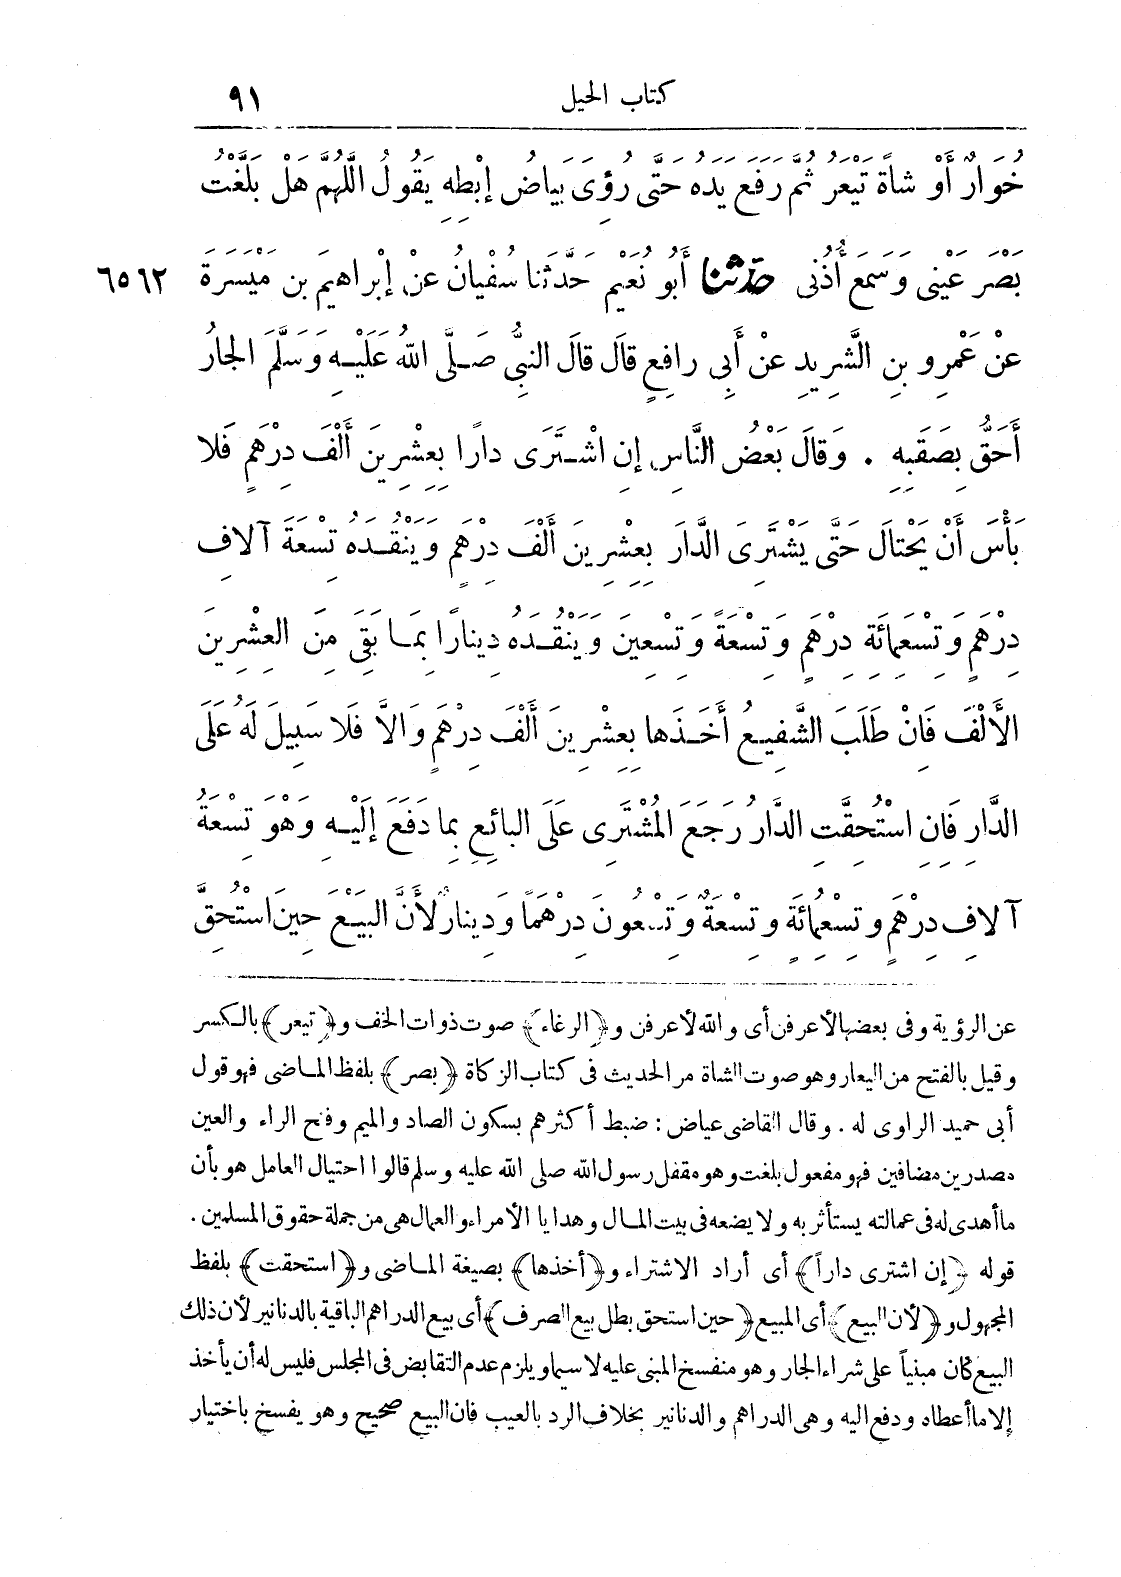 كتاب الحيل
٩١
خُوَارٌ أَوْ شَاةً تَيْعَرُ ثُمَّ رَفَعَ يَدَهُ حَتَّى رُؤِىَ بَيَاضُ إِبْطِهِ يَقُولُ اللَّهُمَّ هَلْ بَلَّغْتُ
بَصْرَ عَيْنِى وَسَمْعَ أُذُنِى حَدَّثَنَا أَبُو نُعَيْمٍ حَدَّثَنَا سُفْيَانُ عَنْ إِبْرَاهِيمَ بْنِ مَيْسَرَةَ
٦٥٦٢
عَنْ عَمْرِو بْنِ الشَّرِيدِ عَنْ أَبِى رَافِعٍ قَالَ قَالَ النَّبِىُّ صَلَّى اللهُ عَلَيْهِ وَسَلَّمَ الجَارُ
أَحَقُّ بِصَقَبِهِ . وَقَالَ بَعْضُ النَّاسِ إِنِ اشْتَرَى دَارًا بِعِشْرِينَ أَلْفَ دِرْهَمٍ فَلَا
بَأْسَ أَنْ يَحْتَالَ حَتَّى يَشْتَرِىَ الدَّارَ بِعِشْرِينَ أَلْفَ دِرْهَمٍ وَيَنْقُدَهُ تِسْعَةَ آلَافِ
دِرْهَمٍ وَتِسْعَمِائَةِ دِرْهَمٍ وَتِسْعَةً وَتِسْعِينَ وَيَنْقُدَهُ دِينَارًا بِمَا بَقِىَ مِنَ العِشْرِينَ
الأَلْفَ فَانْ طَلَبَ الشَّفِيعُ أَخَذَهَا بِعِشْرِينَ أَلْفَ دِرْهَمٍ وَالَّا فَلَا سَبِيلَ لَهُ عَلَى
الدَّارِ فَانِ اسْتُحِقَّتِ الدَّارُ رَجَعَ المُشْتَرِى عَلَى البَائِعِ بِمَا دَفَعَ إِلَيْهِ وَهْوَ تِسْعَةُ
آلَافِ دِرْهَمٍ وَتِسْعُمِائَةٍ وَتِسْعَةٌ وَتِسْعُونَ دِرْهَمًا وَدِينَارٌ لأَنَّ البَيْعَ حِينَ اسْتُحِقَّ
عن الرؤية وفى بعضها لأعرفن أى والله لأعرفن و﴿الرغاء﴾ صوت ذوات الخف و﴿تيعر﴾ بالكسر
وقيل بالفتح من اليعار وهو صوت الشاة مر الحديث فى كتاب الزكاة ﴿بصر﴾ بلفظ الماضى فهو قول
أبى حميد الراوى له . وقال القاضى عياض : ضبط أكثرهم بسكون الصاد والميم وفتح الراء والعين
مصدرين مضافين فهو مفعول بلغت وهو مقفل رسول الله صلى الله عليه وسلم قالوا احتيال العامل هو بأن
ما أهدى له فى عمالته يستأثر به ولا يضعه فى بيت المال وهدايا الأمراء والعمال هى من جملة حقوق المسلمين .
قوله ﴿إن اشترى داراً﴾ أى أراد الاشتراء و﴿أخذها﴾ بصيغة الماضى و﴿استحقت﴾ بلفظ
المجهول و﴿لأن البيع﴾ أى المبيع ﴿حين استحق بطل بيع الصرف﴾ أى بيع الدراهم الباقية بالدنانير لأن ذلك
البيع كان مبنياً على شراء الجار وهو منفسخ المبنى عليه لا سيما ويلزم عدم التقابض فى المجلس فليس له أن يأخذ
إلا ما أعطاه ودفع اليه وهى الدراهم والدنانير بخلاف الرد بالعيب فان البيع صحيح وهو يفسخ باختيار